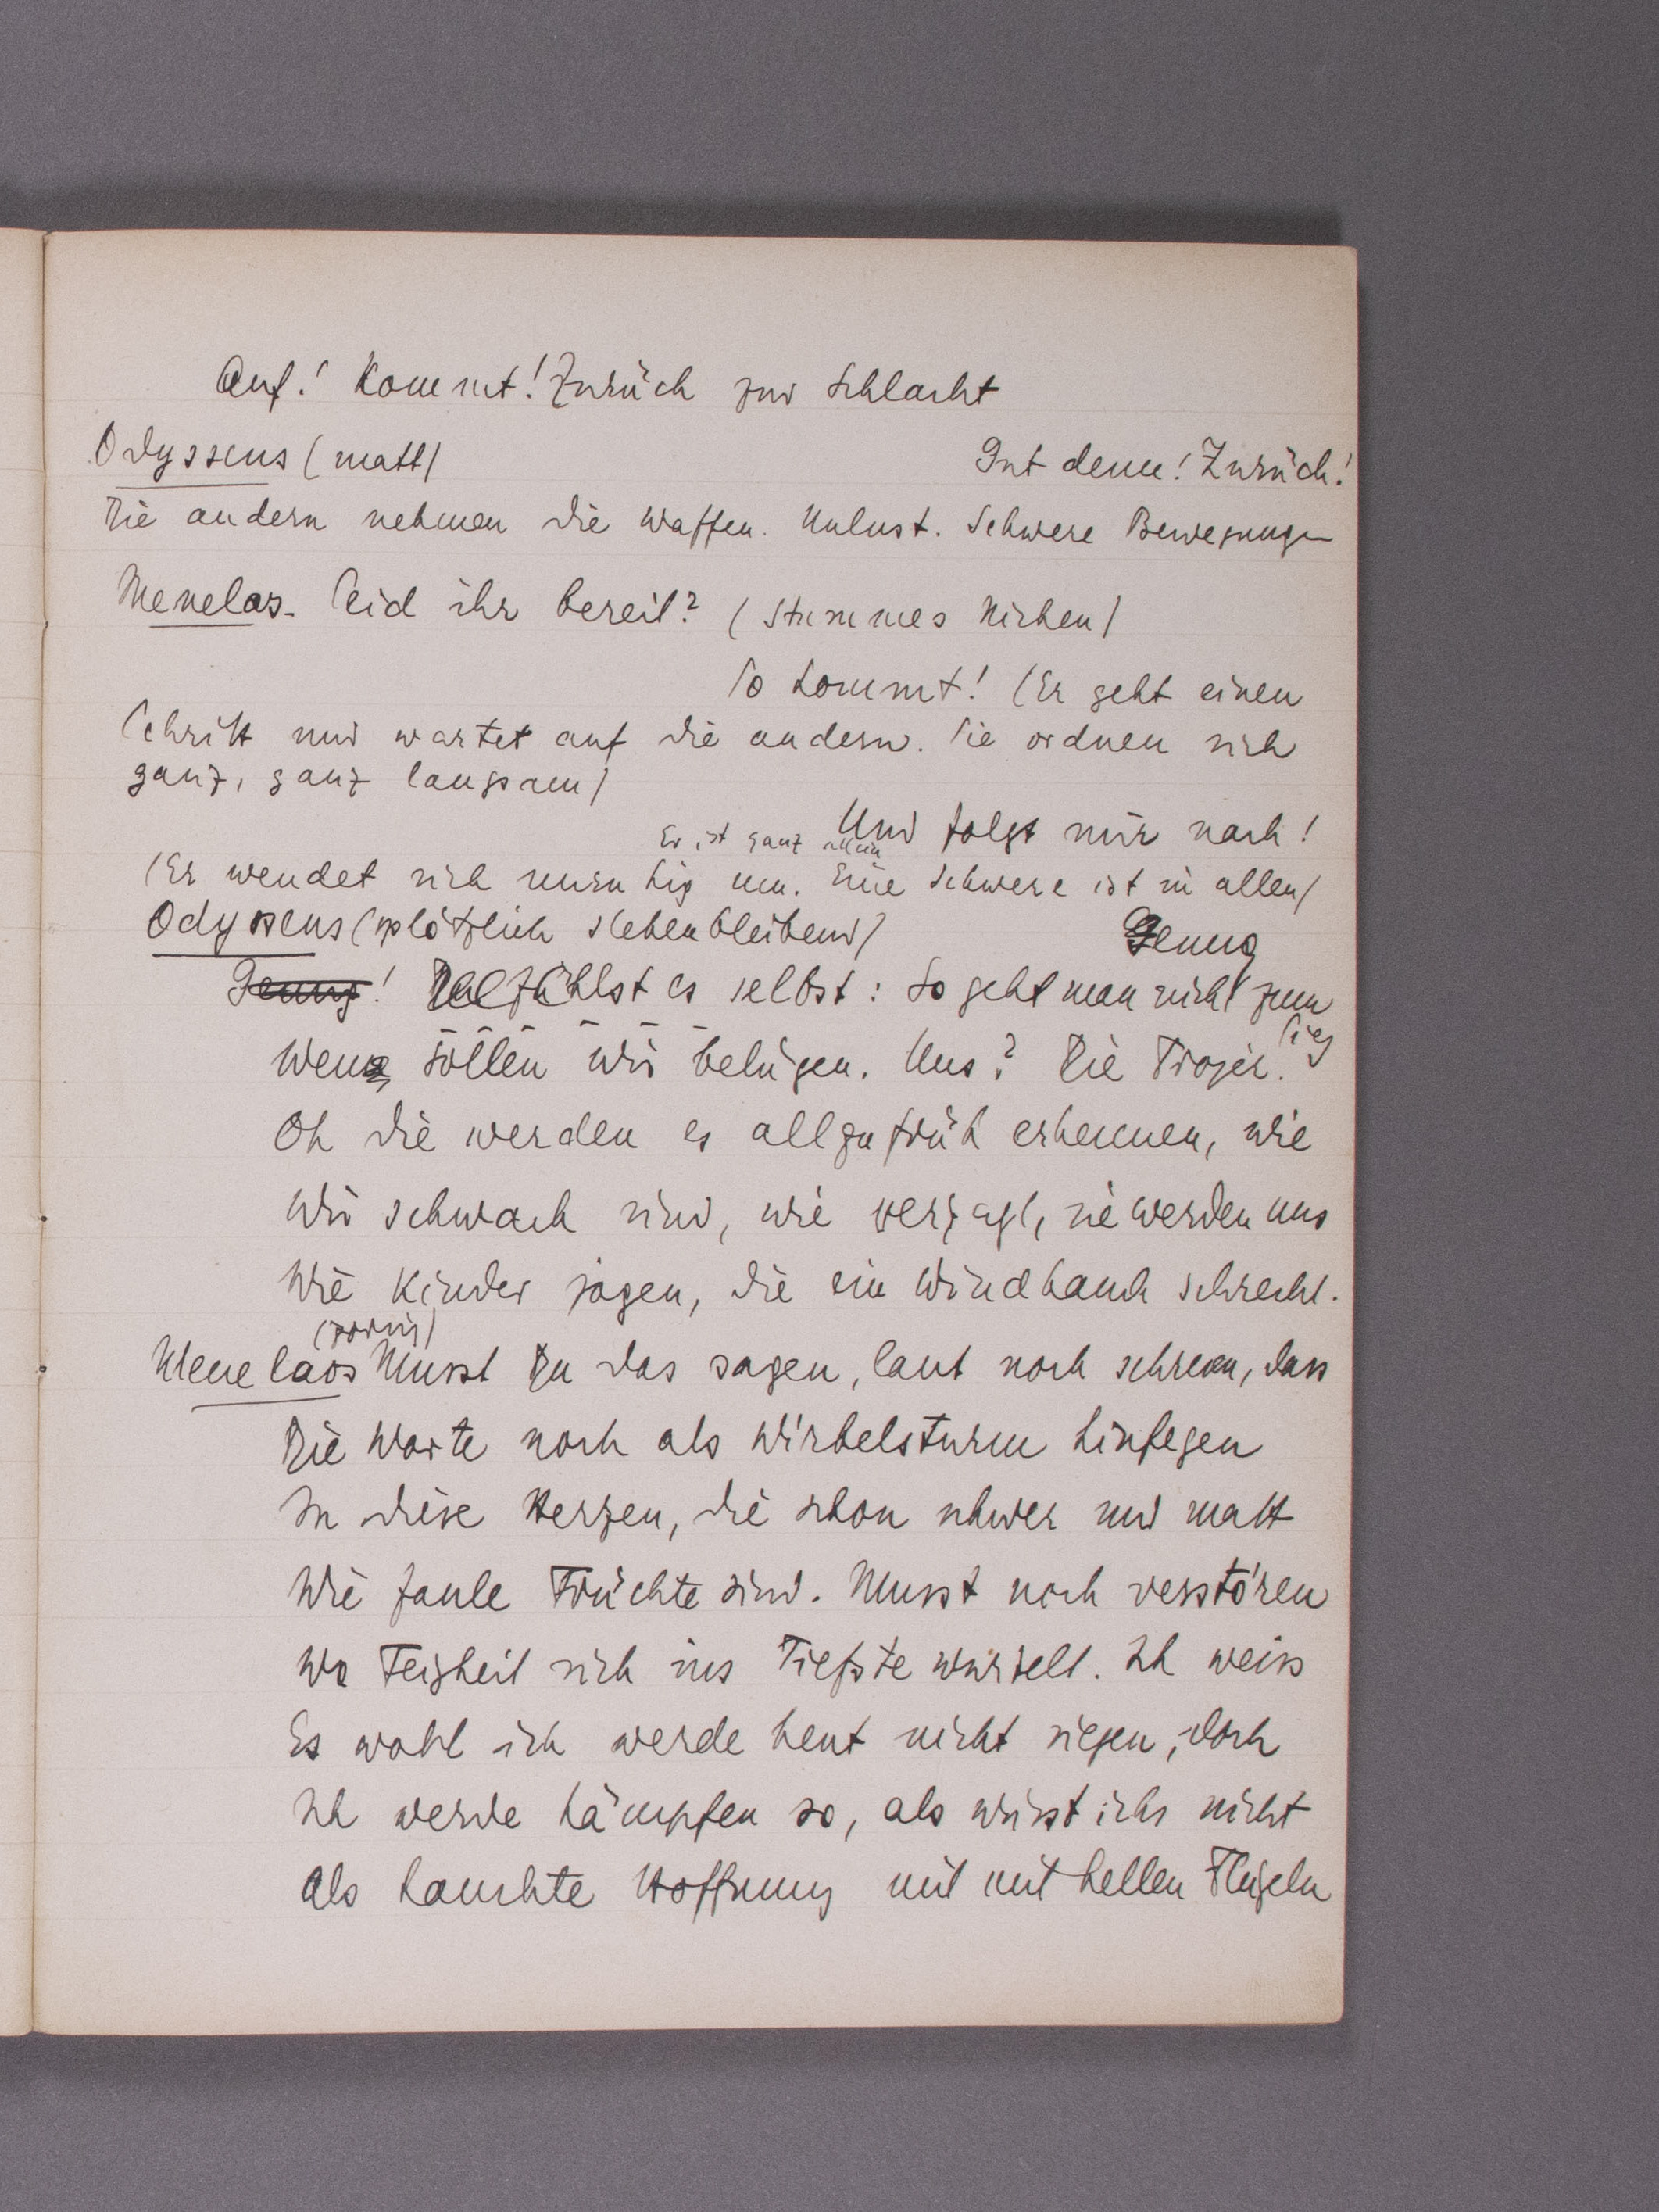 Auf! Kommt! Zurück zur Schlacht
Odysseus (matt) Gut denn! Zurück!
Die andern nehmen die Waffen. Unlust. Schwere Bewegungen
Menelas. Seid ihr bereit? (Stummes Nicken)
So kommt! (Er geht einen
Schritt und wartet auf die andern. Sie ordnen sich
ganz, ganz langsam)
Und folgt mir nach!
Er ist ganz allein
(Er wendet sich unruhig um. Eine Schwere ist in allen)
Odysseus (plötzlich stehenbleibend) Genug
Genug! Du fühlst es selbst: So geht man nicht zum
Sieg
Wen sollen wir belügen. Uns? Die Trojer.
Oh die werden es allzufrüh erkennen, wie
Wir schwach sind, wie verzagt, sie werden uns
Wie Kinder jagen, die ein Windhauch schreckt.
(zornig)
Menelaos Musst Du das sagen, laut noch schreien, dass
Die Worte noch als Wirbelsturm hinfegen
In diese Herzen, die schon schwer und matt
Wie faule Früchte sind. Musst noch verstören
Wo Feigheit sich ins Tiefste wurzelt. Ich weiss
Es wohl ich werde heut nicht siegen, doch
Ich werde kämpfen so, als wüsst ichs nicht
Als hauchte Hoffnung mit mit hellen Flügeln